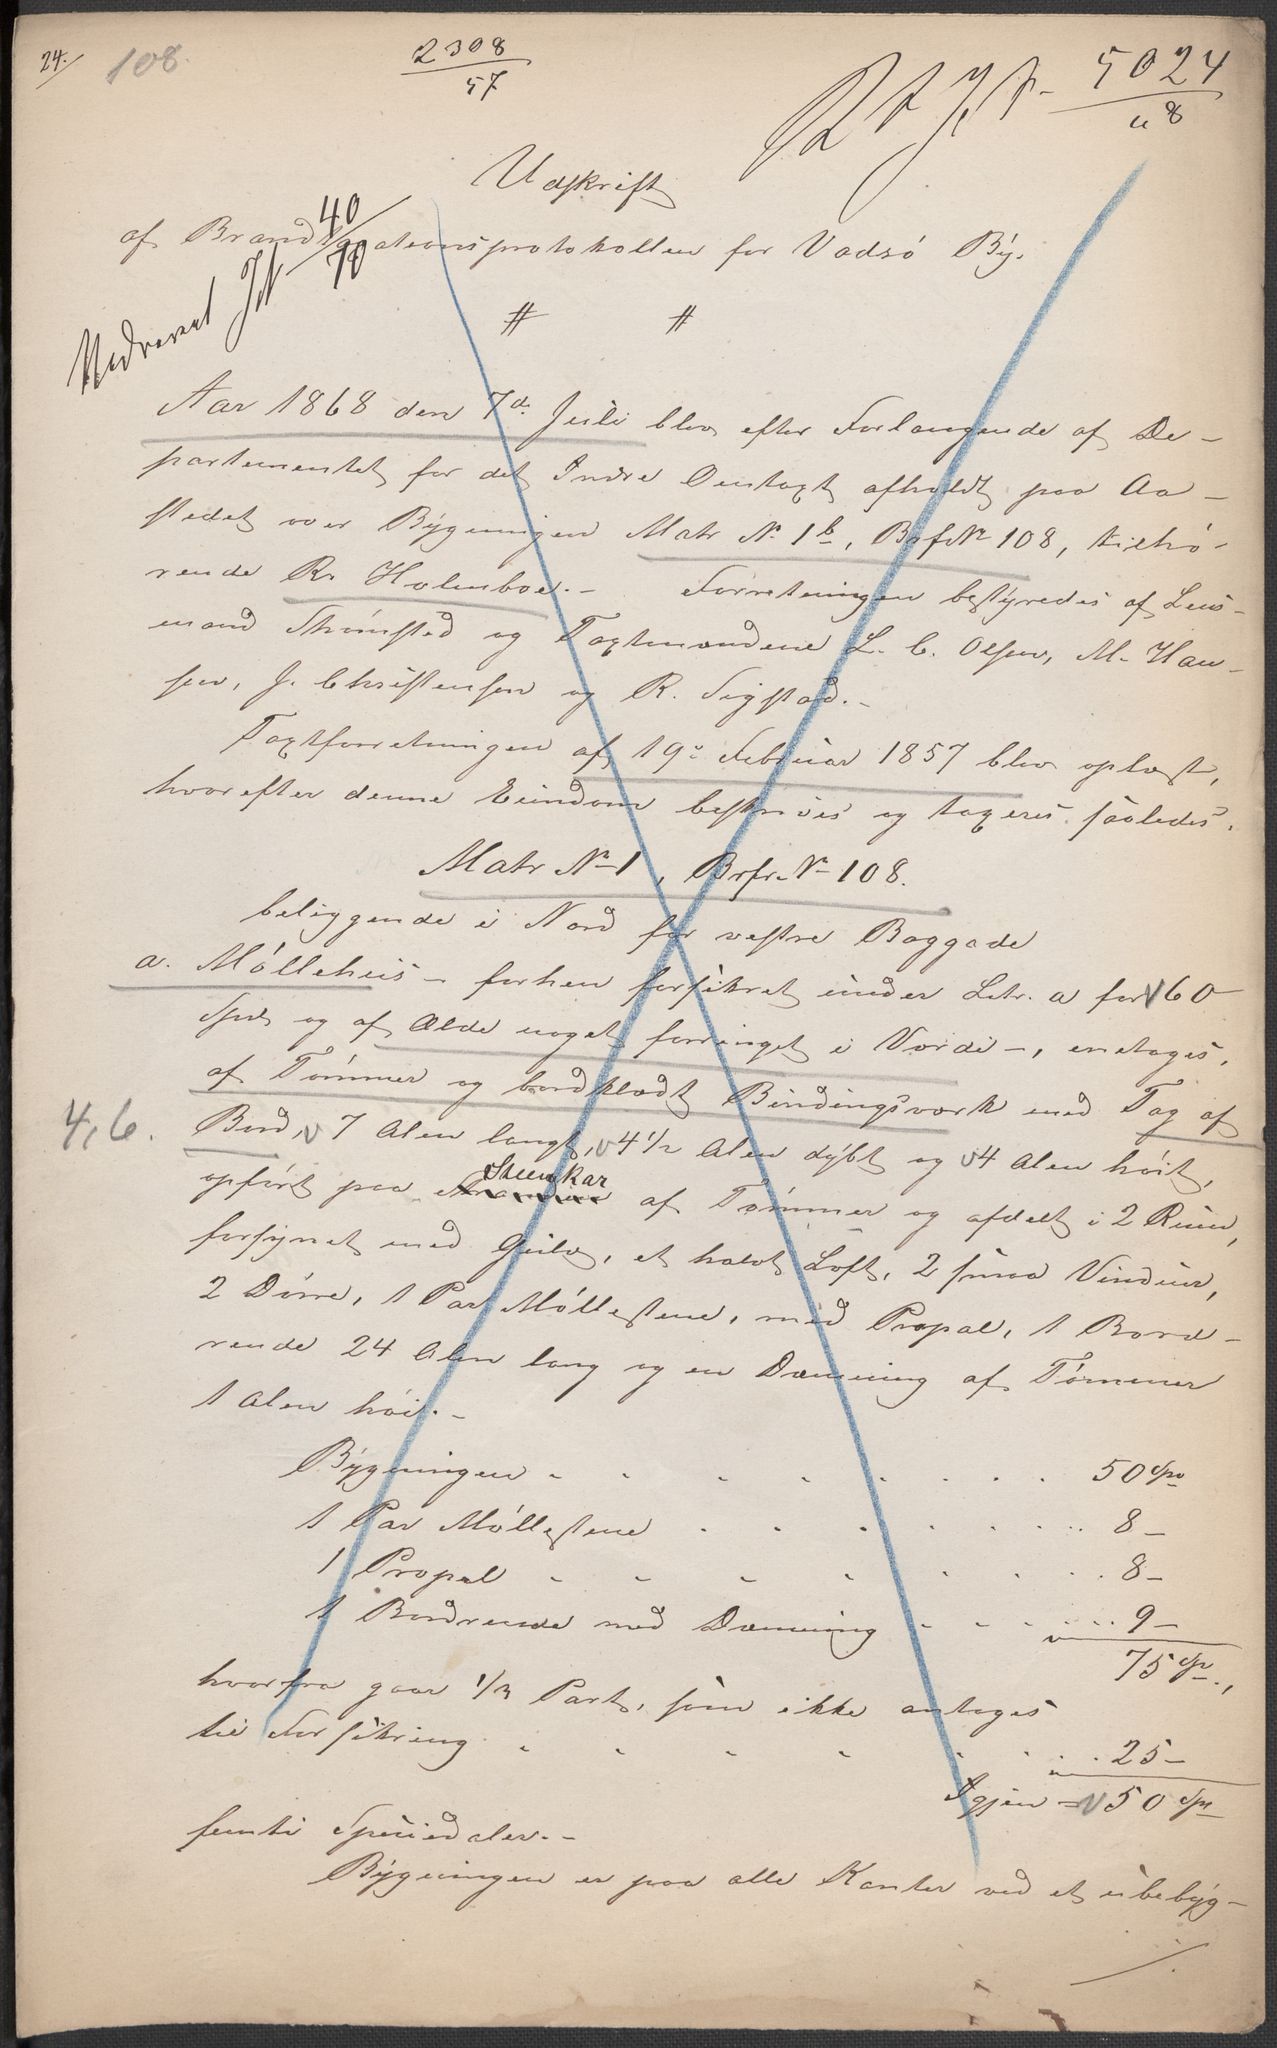 24.
108.
2308
57
5024
68
Udskrift
af Brandtaxationsprotokollen for Vadsö By.
40
70
# #
Aar 1868 den 7de Juli blev efter Forlangende af De-
partementet for det Indre Omtaxt afholdt paa Aa-
stedet over Bygningen Matr No 1b, Brf No 108, tilhö-
rende R. Holmboe. - Forretningen bestyredes af Lens-
mand Strömsted og Taxtmændene L. C. Olsen, M. Han-
sen, J. Christensen og R. Sigstad. -
Taxtforretningen af 19de Februar 1857 blev oplæst,
hvorefter denne Eiendom beskrives og taxeres saaledes.
Matr No 1, Brfr. No 108.
beliggende i Nord for vestre Baggade
a. Möllehuus - forhen forsikret under Litr. a for 60
Spd og af Ælde noget forringet i Værdi -, entages,
af Tömmer og bordklædt Bindingsværk med Tag af
4,6.
Bord, 7 Alen langt, 4 1/2 Alen dybt og 4 Alen höit,
Steenkar
opfört paa af Tömmer og afdelt i 2 Rum,
forsynet med Gulv, et halvt Loft, 2 smaa Vinduer,
2 Dörre, 1 Par Möllestene, med Propel, 1 Bord-
rende 24 Alen lang og en Dæmning af Tömmer
1 Alen höi. -
Bygningen 50 Spd
1 Par Möllestene 8 -
1 Propel 8 -
1 Bordrende med Dæmning 9 -
75 Spd.,
hvorfra gaar 1/3 Part, som ikke antages
til Forsikring 25 -
Igjen = 50 Spd
femti Speciedaler. -
Bygningen er paa alle Kanter ved et ubebyg-